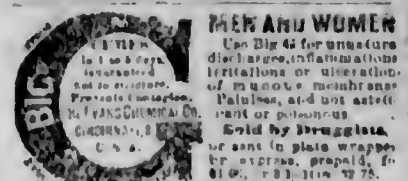 BIG
CURES
in 1 to 5 days.
Guaranteed
not to stricture.
Prevents Contagion.
THE EVANS CHEMICAL CO.
CINCINNATI, O.
U. S. A.
MEN AND WOMEN
Use Big G for unnatural
discharges, inflammations
irritations or ulceration
of mucous membranes
Painless, and not astrin
gent or poisonous.
Sold by Druggists,
or sent in plain wrapper
by express, prepaid, fo